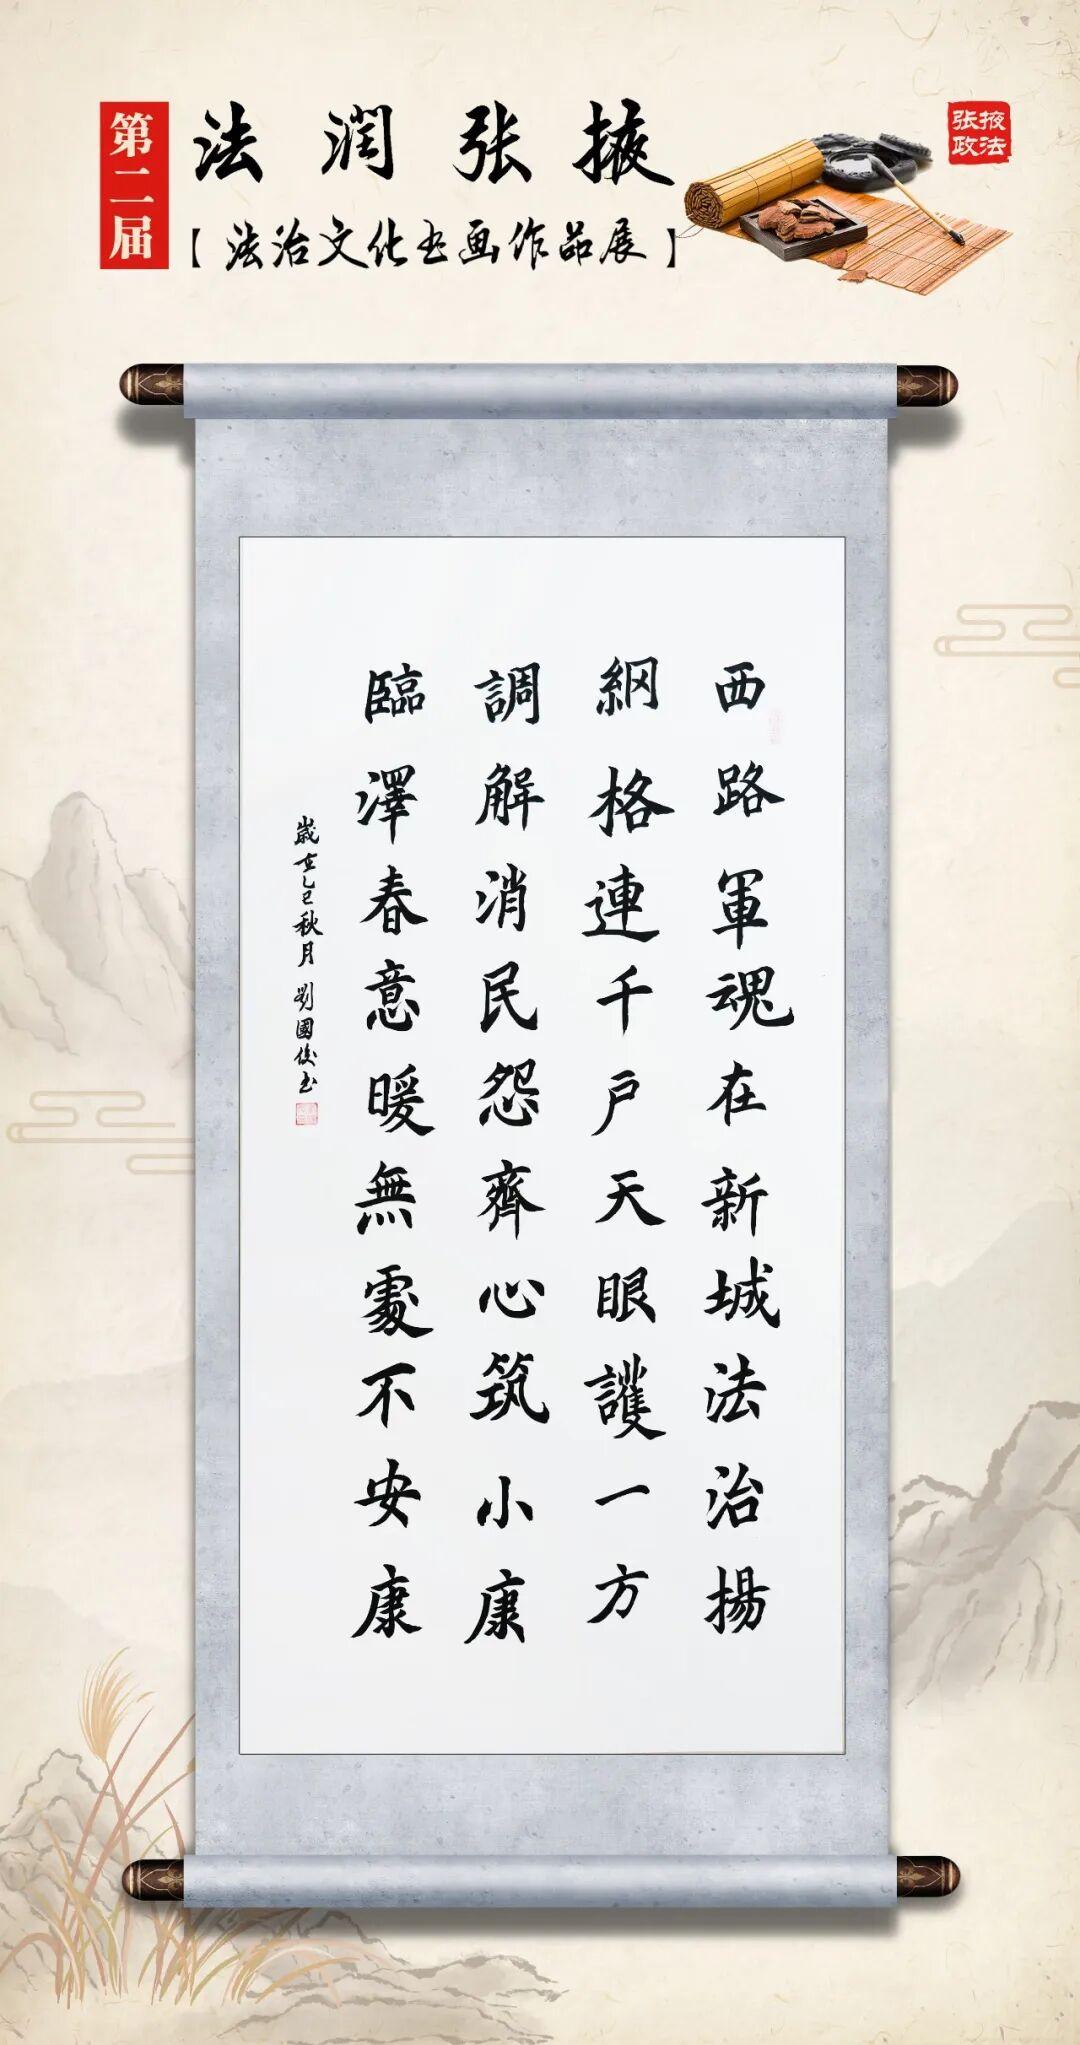 第二届
法润张掖
【法治文化书画作品展】
张掖
政法
西路軍魂在新城法治揚
網格連千戶天眼護一方
調解消民怨齊心筑小康
臨澤春意暖無處不安康
歲在乙巳秋月劉國俊书